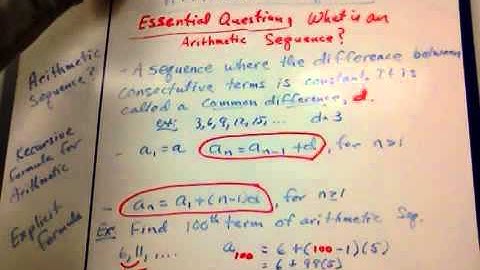 Essential Question, What is an
Arithmetic Sequence?
Arithmetic
Sequence?
- A sequence where the difference between
consecutive terms is constant. It is
called a common difference, d.
Ex: 3, 6, 9, 12, 15, ... d=3
Recursive
formula for
Arithmetic
- a₁ = a aₙ = aₙ₋₁ + d, for n≥1
Explicit
Formula
- aₙ = a₁ + (n-1)d, for n≥1
Ex: Find 100th term of arithmetic Seq.
6, 11, ... a₁₀₀ = 6 + (100-1)(5)
= 6 + 99(5)